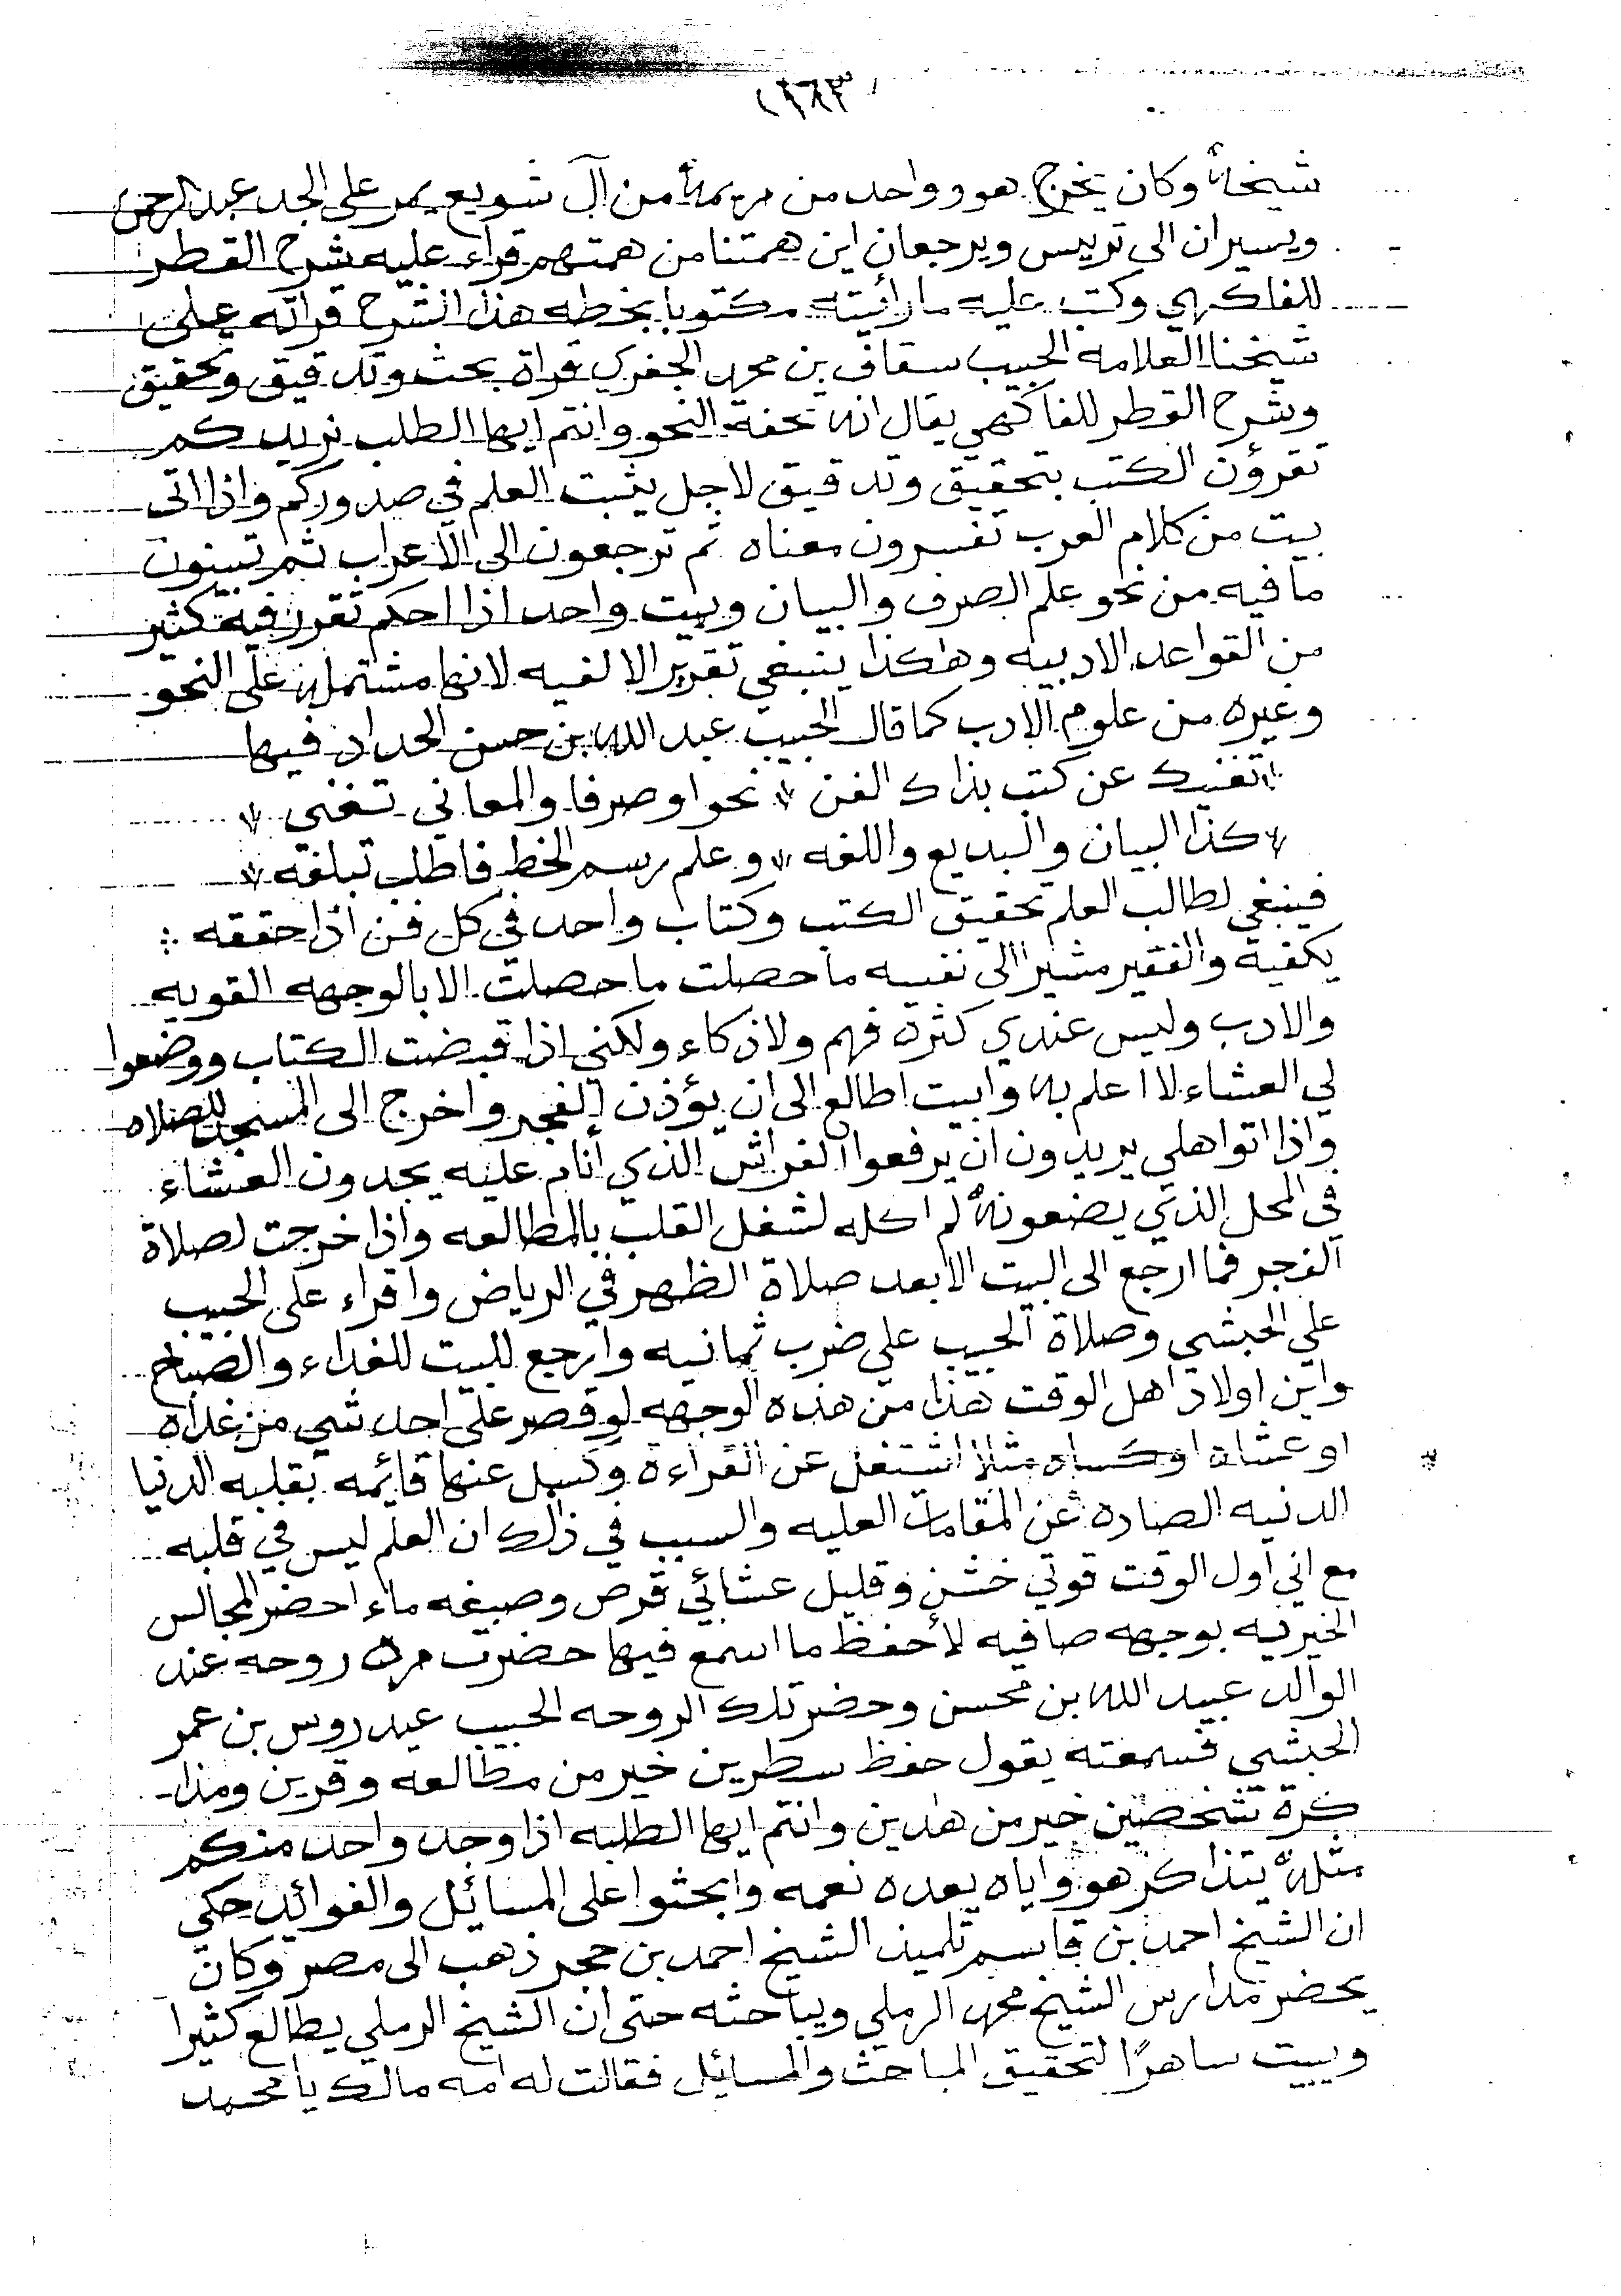 شيخه وكان يخرج هو وواحد من مريمه من آل شويع يمر على الجد عبدالرحمن
ويسيران الى تريس ويرجعان اين همتنا من همتهم قراء عليه شرح القطر
للفاكهي وكتب عليه ما رأئيته مكتوبا بخطه هذا الشرح قراته على
شيخنا العلامه الحبيب سقاف بن محمد الجفري قراة بحث وتدقيق وتحقيق
وشرح القطر للفاكهي يقال انه تحفة النحو وانتم ايها الطلب نريدكم
تقرؤن الكتب بتحقيق وتدقيق لاجل يثبت العلم في صدوركم واذا اتى
بيت من كلام العرب تفسرون معناه ثم ترجعون الى الاعراب ثم تبينون
ما فيه من نحو علم الصرف والبيان وبيت واحد اذا احكم تقرر فيه كثير
من القواعد الادبيه وهكذا ينبغي تقرير الالفيه لانها مشتمله على النحو
وغيره من علوم الادب كما قال الحبيب عبد الله بن حسن الحداد فيها
تغنيك عن كتب بذاك الفن * نحوا وصرفا والمعاني تغني *
* كذا البيان والبديع واللغه * وعلم رسم الخط فاطلب تبلغه *
فينبغي لطالب العلم تحقيق الكتب وكتاب واحد في كل فن اذا حققه
يكفيه والفقير مشيرا الى نفسه ما حصلت ما حصلت الا بالوجهه القويه
والادب وليس عندي كثرة فهم ولا ذكاء ولكني اذا قبضت الكتاب ووضعوا
لي العشاء لا اعلم به وابيت اطالع الى ان يؤذن الفجر واخرج الى المسجد للصلاه
واذا اتوا هلي يريدون ان يرفعوا الفراش الذي أنام عليه يجدون العشاء
في المحل الذي يضعونه لم اكله لشغل القلب بالمطالعه واذا خرجت لصلاة
الفجر فما ارجع الى البيت الا بعد صلاة الظهر في الرياض واقراء على الحبيب
علي الحبشي وصلاة الحبيب علي ضرب ثمانيه وارجع للبيت للغداء والصباح
واين اولاد اهل الوقت هذا من هذه الوجهه لو قصر على احد شي من غداه
او عشاه او كساه مثلا اشتغل عن القراءة وكسل عنها قايمه بقلبه الدنيا
الدنيه الصاده عن المقامات العليه والسبب في ذلك ان العلم ليس في قلبه
مع اني اول الوقت قوتي خشن وقليل عشائي قرص وصبغه ماء احضر المجالس
الخيريه بوجهه صافيه لأحفظ ما اسمع فيها حضرت مره روحه عند
الوالد عبيد الله بن محسن وحضر تلك الروحه الحبيب عيدروس بن عمر
الحبشي فسمعته يقول حفظ سطرين خير من مطالعه وقرين ومذا-
كرة شخصين خير من هذين وانتم ايها الطلبه اذا وجد واحد منكم
مثله يتذاكر هو واياه يعده نعمه وابحثوا على المسايل والفوائد حكي
ان الشيخ احمد بن قاسم تلميذ الشيخ احمد بن حجر ذهب الى مصر وكان
يحضر مدارس الشيخ محمد الرملي ويباحثه حتى ان الشيخ الرملي يطالع كثيرا
ويبيت ساهرًا لتحقيق المباحث والمسايل فقالت له امه مالك يا محمد